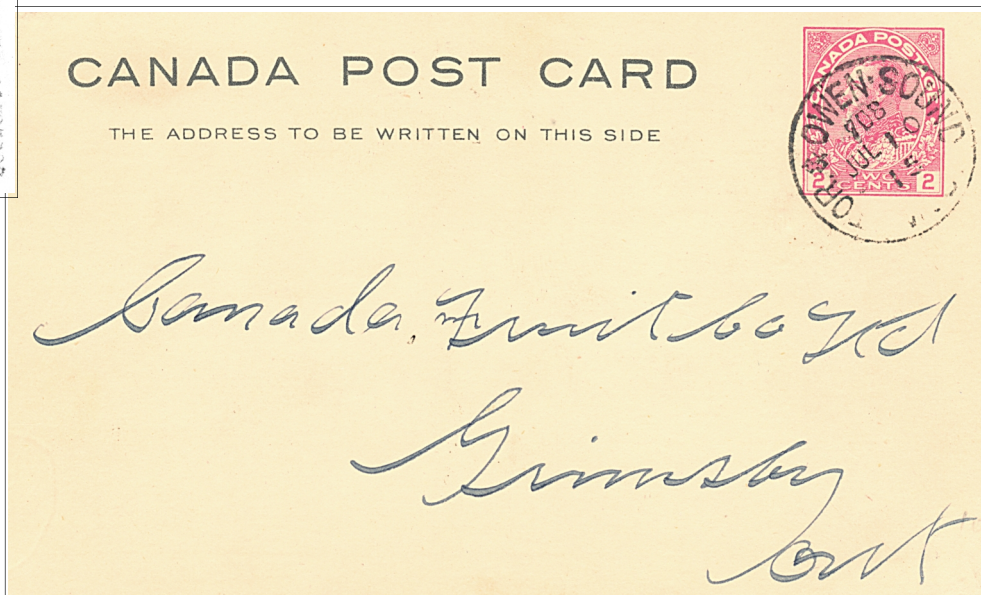 CANADA POST CARD
THE ADDRESS TO BE WRITTEN ON THIS SIDE
CANADA POSTAGE
2 TWO CENTS 2
OWEN SOUND
JUL 10
15
TOR
Canada Fruit Co Ltd
Grimsby
Ont